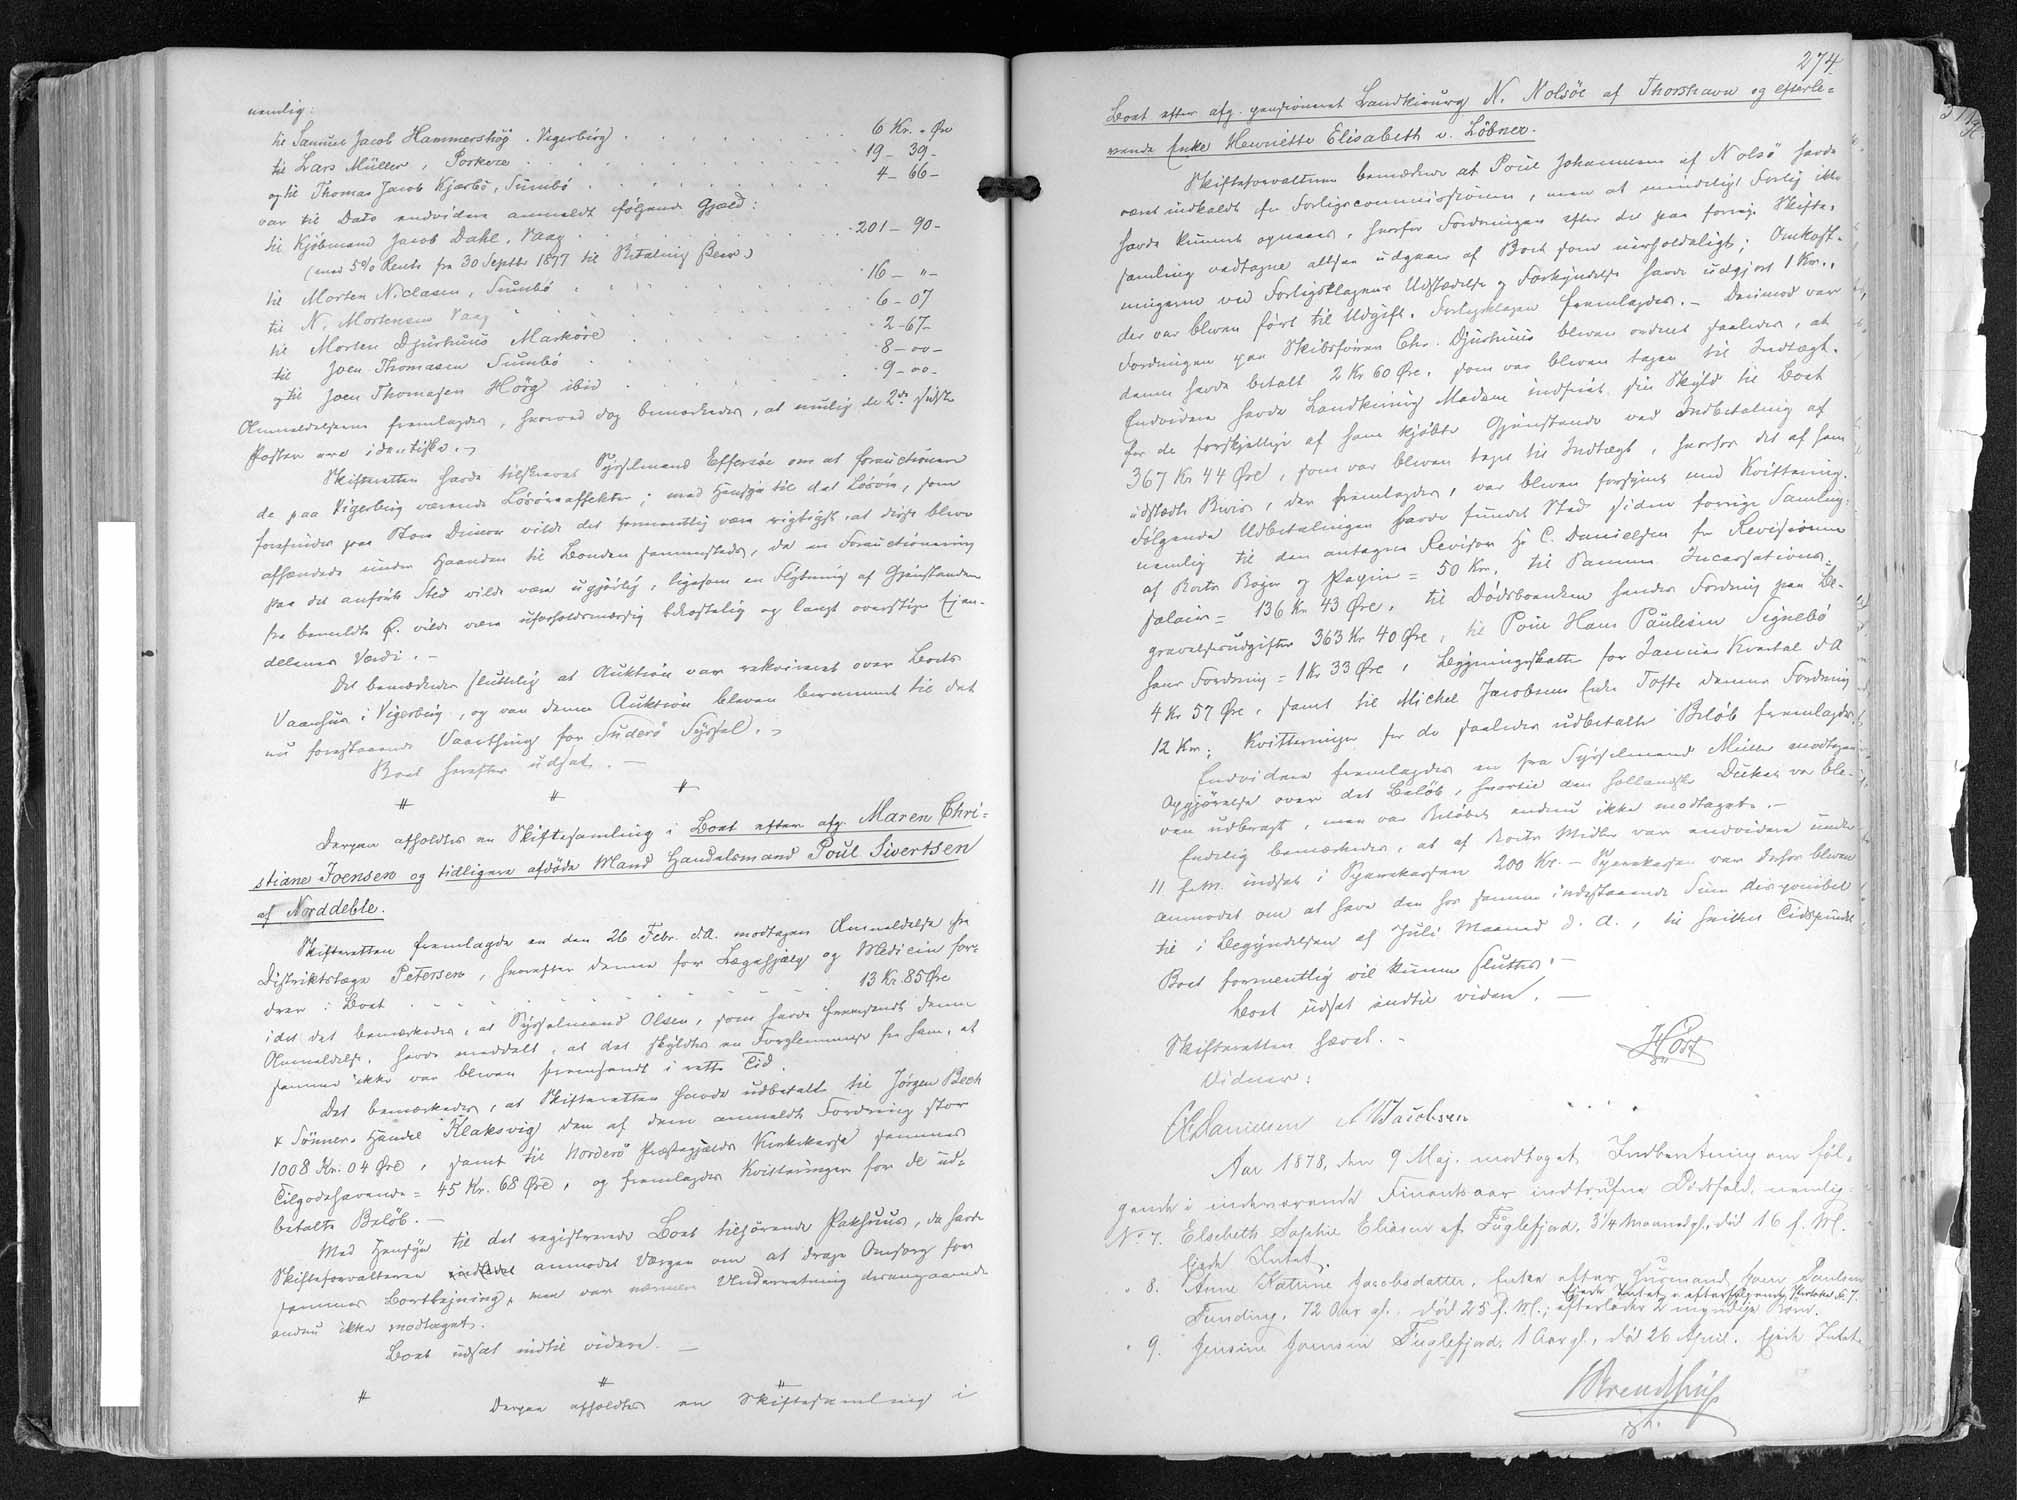 nemlig:
til Samuel Jacob Hammershög. Vigerbirg . . . . . . . 6 Kr. " Øre
til Lars Müller, Porkere . . . . . . . . . 19 – 39 –
og til Thomas Jacob Kjærbö, Sumbö . . . . . . . 4 – 66 –
var til Dato endvidere anmeldt følgende Gjæld:
til Kjöbmand Jacob Dahl, Vaag . . . . . . . 201 – 90 –
(med 5% Rente fra 30 Septbr 1877 til Betaling skeer)
til Morten Niclasen, Sumbö . . . . . . . 16 – " –
til N. Mortensen Vaag . . . . . . . 6 – 07
til Morten Djurhuus Marköre . . . . . . 2 – 67 –
til Joen Thomasen Sumbö . . . . . . 8 – 00 –
og til Joen Thomasen Hörg ibid . . . . . . 9 – 00 –
Anmeldelserne fremlagdes, hvorved dog bemærkedes, at mulig de 2de sidste
Poster ere identiske. –
Skifteretten havde tilskrevet Sysselmand Effersöe om at forauctionere
de paa Vigerbirg værende Lösöreeffekter; med Hensyn til det Lösöre, som
forefindes paa Store Dimon vilde det formentlig være rigtigst, at disse bleve
afhændede under Haanden til Bonden sammesteds, da en Forauctionering
paa det anførte Sted vilde være ugjørlig, ligesom en Flytning af Gjenstandene
fra bemeldte Ø. vilde være uforholdsmæssig bekostelig og langt overstige Ejen-
delenes Værdi. –
Det bemærkedes sluttelig at Auktion var rekvireret over Boets
Vaanhus i Vigerbirg, og var denne Auktion bleven berammet til det
nu forestaaende Vaarthing for Suderö Syssel. –
Boet herefter udsat. –
# # #
Derpaa afholdtes en Skiftesamling i Boet efter afg. Maren Chri-
stiane Joensen og tidligere afdöde Mand Handelsmand Poul Sivertsen
af Norddeble.
Skifteretten fremlagde en den 26 Febr. d.A. modtagen Anmeldelse fra
Distriktslæge Petersen, hvorefter denne for Lægehjælp og Medicin for-
drer i Boet . . . . . . . . . 13 Kr. 85 Øre
idet det bemærkedes, at Sysselmand Olsen, som havde fremsendt denne
Anmeldelse, havde meddelt, at det skyldtes en Forglemmelse fra ham, at
samme ikke var bleven fremsendt i rette Tid.
Det bemærkedes, at Skifteretten havde udbetalt til Jörgen Bech
& Sönners Handel Klaksvig den af dem anmeldte Fordring stor
1008 Kr. 04 Øre, samt til Norderö Præstegjælds Kirkekasse sammes
Tilgodehavende = 45 Kr. 68 Øre, og fremlagdes Kvitteringer for de ud-
betalte Beløb. –
Med Hensyn til det registrerede Boet tilhørende Pakhuus, da havde
Skifteforvalteren anmodet Værgen om at drage Omsorg for
sammes Bortlejning, men var nærmere Underretning desangaaende
endnu ikke modtaget.
Boet udsat indtil videre. –
# # #
Derpaa afholdtes en Skiftesamling i
274.
Boet efter afg. pensioneret Landkirurg N. Nolsöe af Thorshavn og efterle-
vende Enke Henriette Elisabeth v. Löbner.
Skifteforvalteren bemærkede at Poul Johannesen af Nolsö havde
været indkaldt for Forligscommissionen, men at mindeligt Forlig ikke
havde kunnet opnaaes, hvorfor Fordringen efter det paa forrige Skifte-
samling vedtagne altsaa udgaaer af Boet som uerholdeligt; Omkost-
ningerne ved Forligsklagens Udstædelse og Forkyndelse havde udgjort 1 Kr.,
der var bleven fört til Udgift. Forligsklagen fremlagdes. – Derimod var
Fordringen paa Skibsförer Chr. Djurhuus bleven ordnet saaledes, at
denne havde betalt 2 Kr 60 Øre, som var bleven tagen til Indtægt.
Endvidere havde Landkirurg Madsen indfriet sin Skyld til Boet
for de forskjellige af ham kjöbte Gjenstande ved Indbetaling af
367 Kr 44 Øre, som var bleven taget til Indtægt, hvorfor det af ham
udstædte Bevis, der fremlagdes, var bleven forsynet med Kvittering.
Følgende Udbetalinger havde fundet Sted siden forrige Samling:
nemlig til den antagne Revisor Hr C. Danielsen for Revisionen
af Boets Bøger og Papirer = 50 Kr, til Samme Incassations-
salair = 136 Kr 43 Øre, til Dødsboenken hendes Fordring paa Be-
gravelsesudgifter 363 Kr 40 Øre, til Poul Hans Paulesen Signebö
hans Fordring = 1 Kr 33 Øre, Bygningsskatten for Januar Kvartal d A
4 Kr 57 Øre, samt til Michel Jacobsens Enke Tofte dennes Fordring
12 Kr; Kvitteringer for de saaledes udbetalte Beløb fremlagdes.
Endvidere fremlagdes en fra Sysselmand Müller modtagen
Opgjörelse over det Beløb, hvortil den hollandske Dukat var ble-
ven udbragt, men var Beløbet endnu ikke modtaget. –
Endelig bemærkedes, at af Boets Midler var endvidere under
11 f.M. indsat i Sparekassen 200 Kr. – Sparekassen var derhos bleven
anmodet om at have den hos samme indestaaende Sum disponibel
til i Begyndelsen af Juli Maaned d. A., til hvilket Tidspunkt
Boet formentlig vil kunne sluttes. –
Boet udsat indtil videre. –
Skifteretten hævet. –
Vidner:
CDanielsen Jacobsen
Aar 1878, den 9 Maj. modtoget Indberetning om föl-
gende i indeværende Finantsaar indtrufne Dödsfald, nemlig:
No 7. Elsebeth Sophie Eliasen af Fuglefjord, 3¼ Maaned gl., död 16 f. M.
Ejede Intet.
" 8. Anne Katrine Jacobsdatter, Enke efter Huusmand Joen Paulsen
Funding, 72 Aar gl. död 25 f. M.; efterlader 2 myndige Börn.
" 9. Jensine Joensen Fuglefjord, 1 Aar gl., död 26 April. Ejede Intet.